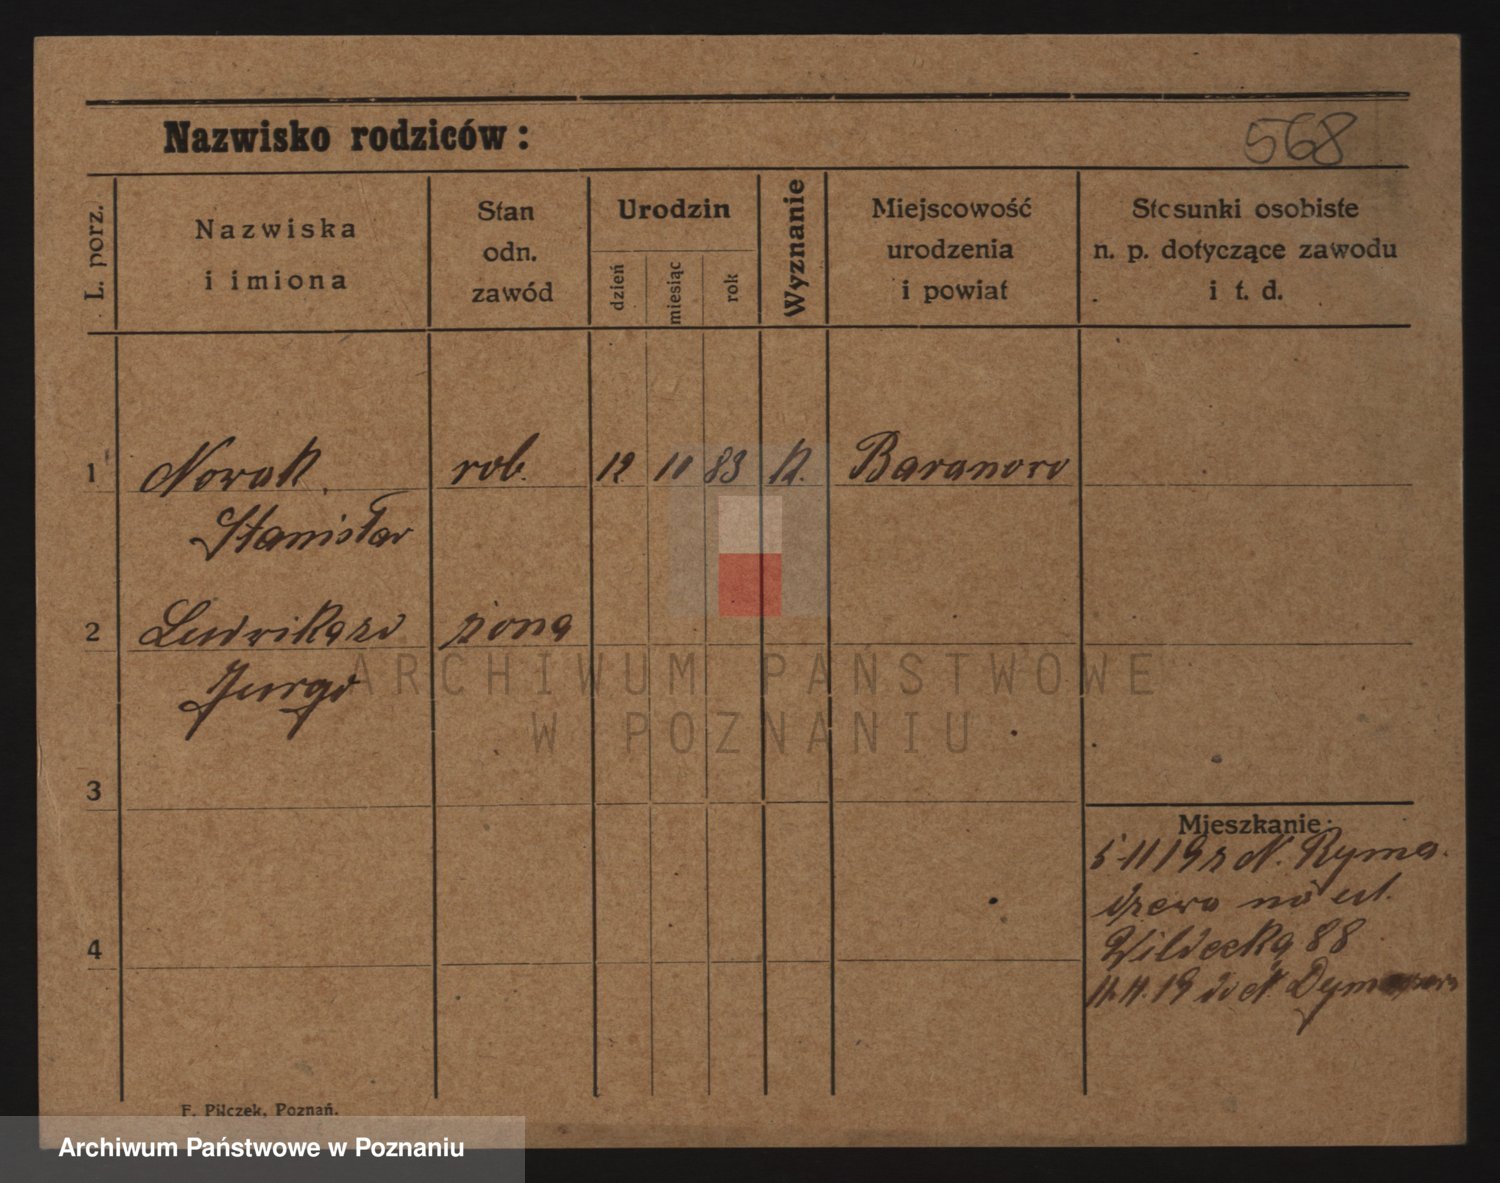 Nazwisko rodziców:
568
L. porz.
Nazwiska
i imiona
Stan
odn.
zawód
Urodzin
dzień
miesiąc
rok
Wyznanie
Miejscowość
urodzenia
i powiat
Stosunki osobiste
n. p. dotyczące zawodu
i t. d.
1 Nowak, rob. 12 11 83 k. Baranowo
Stanisław
2 żona
3
Mieszkanie:
19 z N.
na ul.
Wildecką 88
4
19 do N.
ARCHIWUM PAŃSTWOWE
W POZNANIU
F. Pilczek, Poznań.
Archiwum Państwowe w Poznaniu